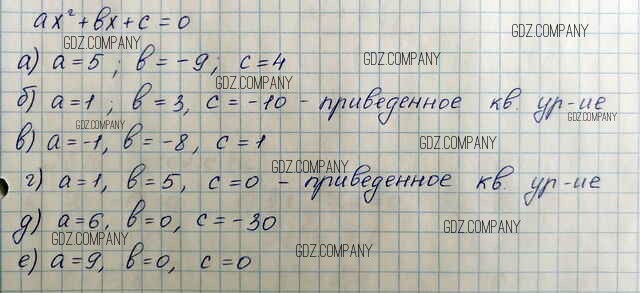 ax² + bx + c = 0
GDZ.COMPANY GDZ.COMPANY
а) a=5; b=-9; c=4 GDZ.COMPANY
GDZ.COMPANY
б) a=1; b=3, c=-10 - приведенное кв. ур-ие
GDZ.COMPANY GDZ.COMPANY
в) a=-1, b=-8, c=1 GDZ.COMPANY
GDZ.COMPANY
г) a=1, b=5, c=0 - приведенное кв. ур-ие
д) a=6, b=0, c=-30 GDZ.COMPANY
GDZ.COMPANY GDZ.COMPANY
е) a=9, b=0, c=0